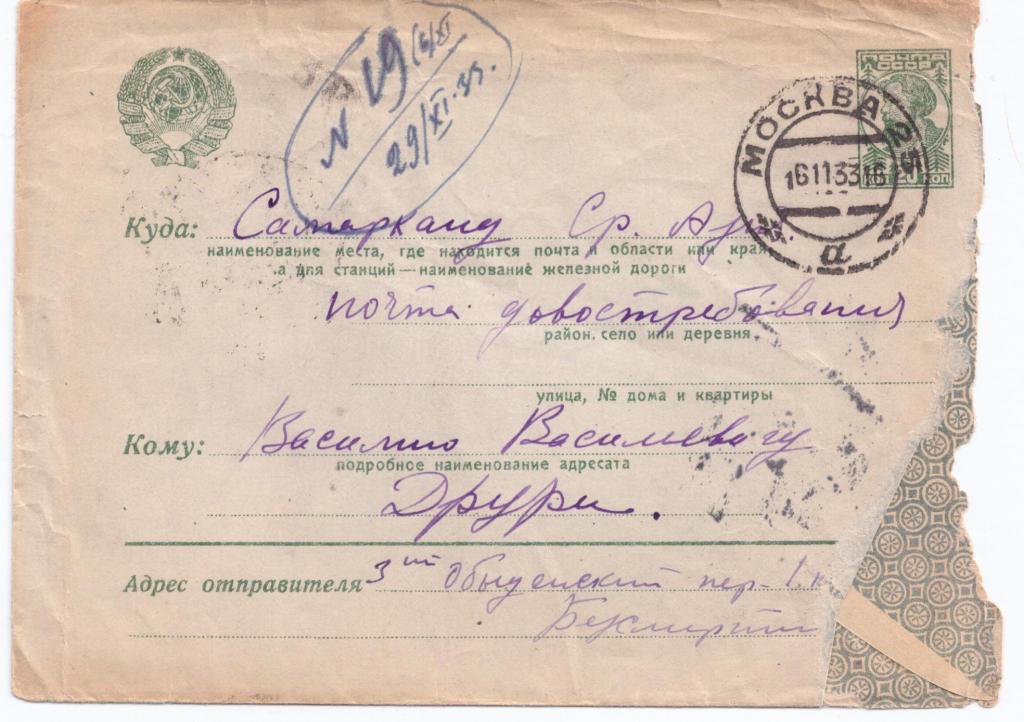 N 19 15/XI
29/XI-33.
ПОЧТА
СССР
20 КОП
МОСКВА 25
16113316
а
Куда: Самарканд Ср. Азия.
наименование места, где находится почта и области или края
а для станций — наименование железной дороги
почта довостребования
район, село или деревня
улица, № дома и квартиры
Кому: Василию Васильевичу
подробное наименование адресата
Друри.
Адрес отправителя 3ий Обыденский пер. 1